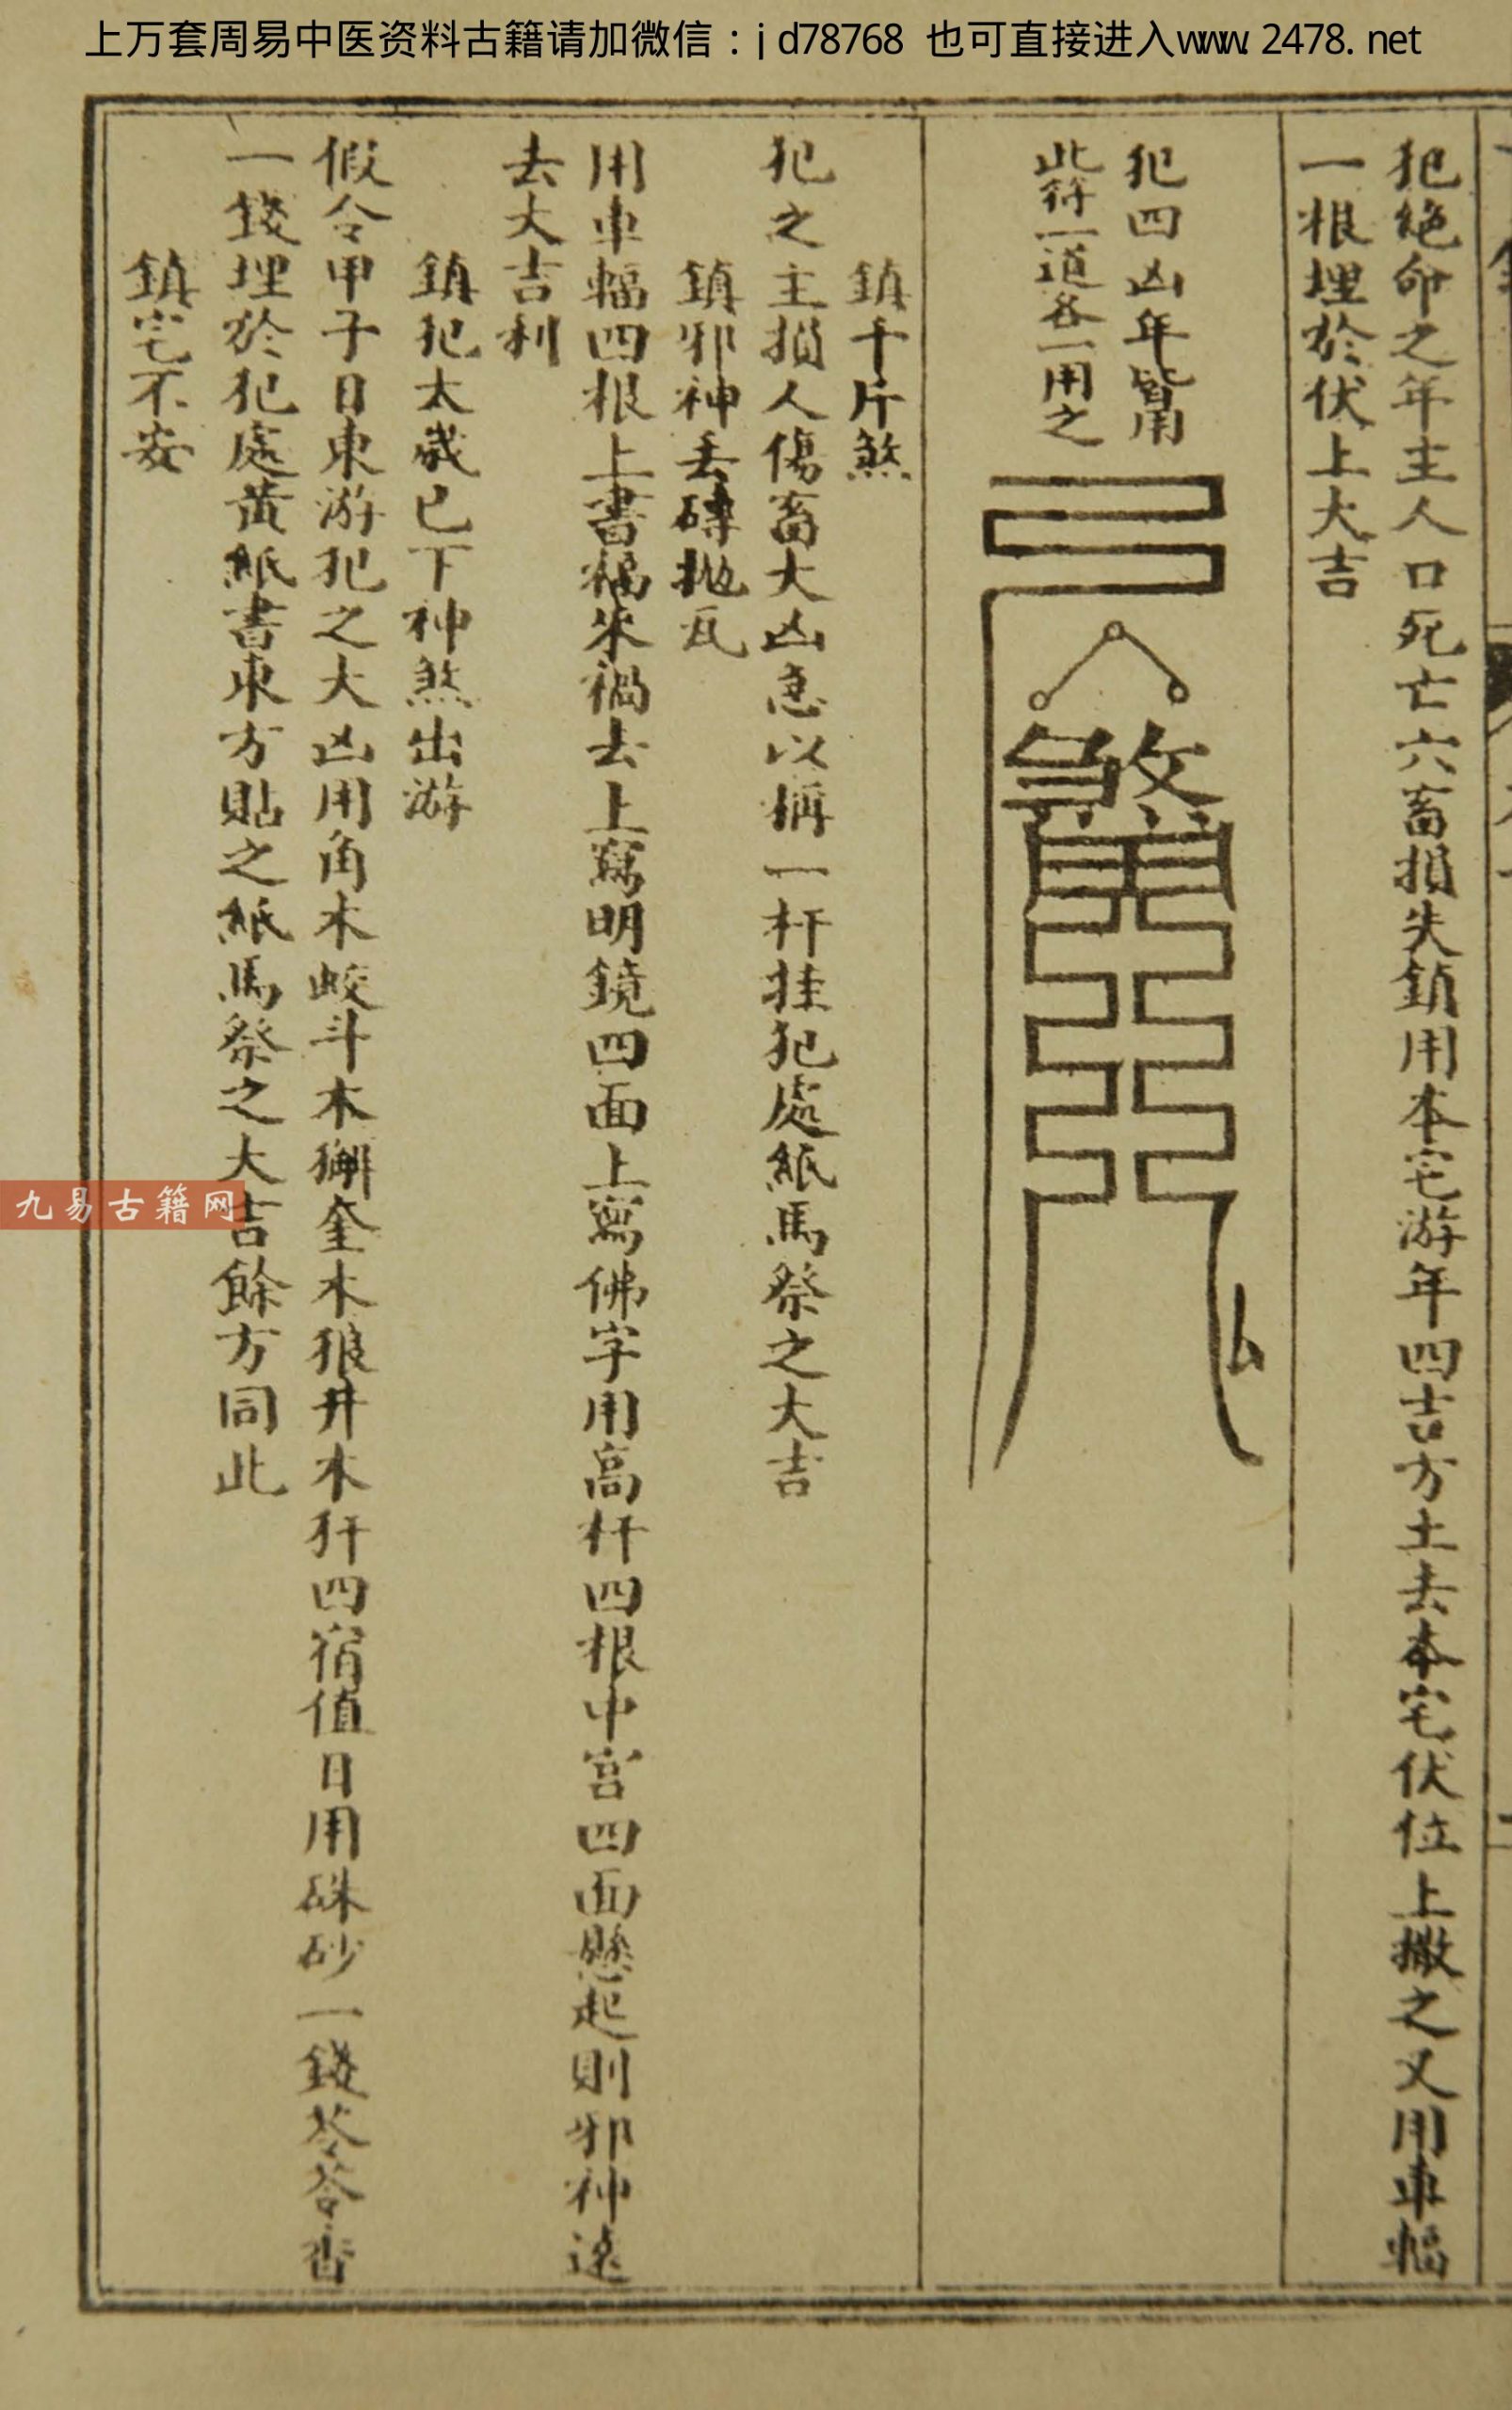 上万套周易中医资料古籍请加微信：jd78768 也可直接进入www.2478.net
犯絶命之年主人口死亡六畜損失鎮用本宅游年四吉方土去本宅伏位上撒之又用車輻
一根埋於伏上大吉
犯四凶年皆用
此符一道各一用之
煞
鎮千斤煞
犯之主損人傷畜大凶急以稱一杆挂犯處紙馬祭之大吉
鎮邪神丢磚抛瓦
用車輻四根上書福來禍去上寫明鏡四面上寫佛字用高杆四根中宫四面懸起則邪神遠
去大吉利
鎮犯太歲已下神煞出游
假令甲子日東游犯之大凶用角木蛟斗木獬奎木狼井木犴四宿值日用硃砂一錢苓苓香
一錢埋於犯處黄紙書東方貼之紙馬祭之大吉餘方同此
鎮宅不安
九易古籍网